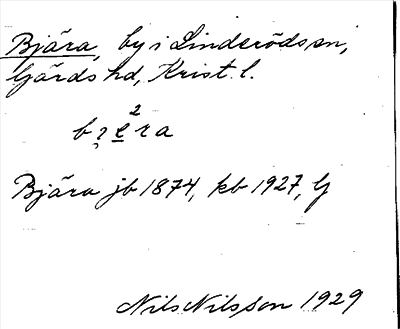 Bjära, by i Linderöds sn,
Gärds hd, Krist. l.
2
b ɂ e r a
Bjära jb 1874, kb 1927, G
Nils Nilsson 1929